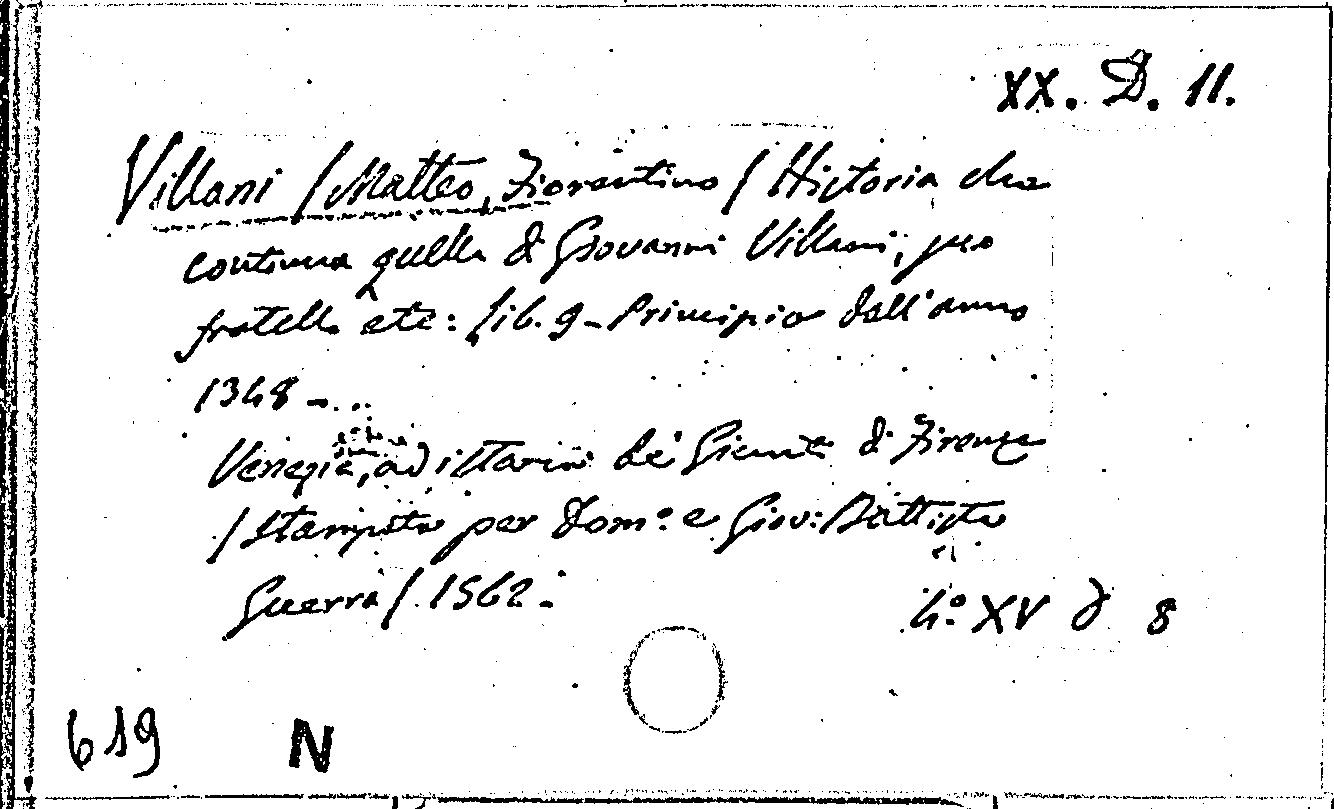 XX. D. 11.
Villani /Matteo, Fiorentino / Historia che
continua quella di Giovanni Villani, suo
fratello etc: lib. 9 - Principio dall'anno
1348 - ...
Venezia, ad istanza de' Giunti di Firenze
/Stampata per Dom.º e Giov: Battista
Guerra/. 1562.-
4.º XV δ 8
619 N